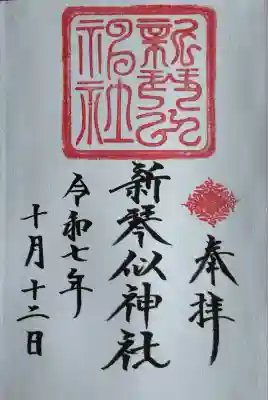 奉拝
新琴似神社
新琴似神社
令和七年
十月十二日